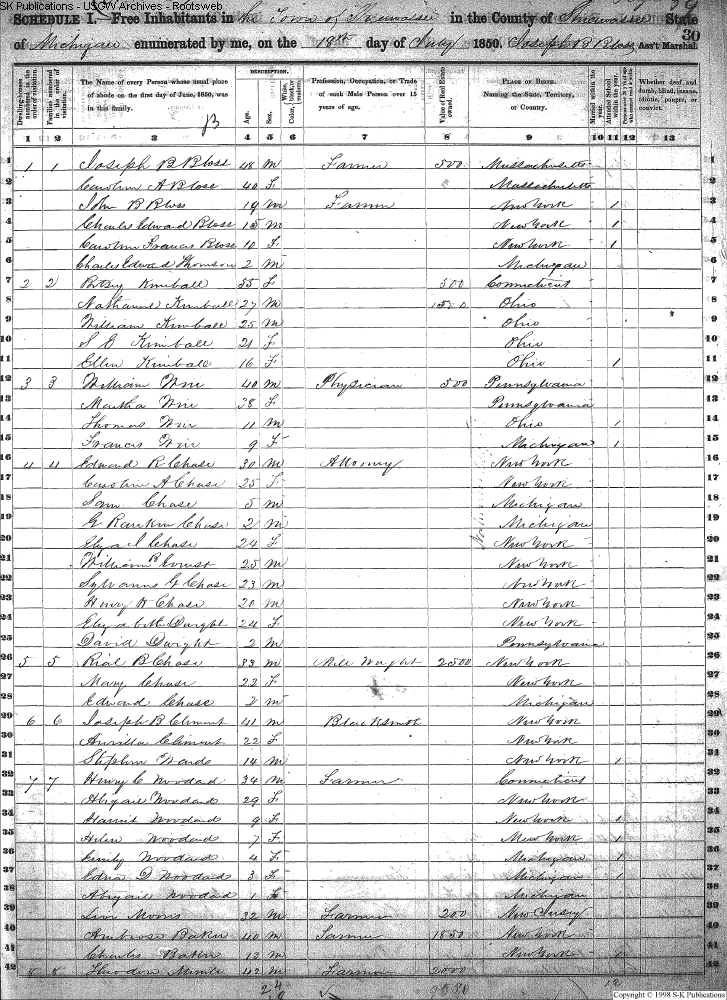 SK Publications - USGW Archives - Rootsweb
SCHEDULE I.—Free Inhabitants in the Town of Shiawassee in the County of Shiawassee State
30
of Michigan enumerated by me, on the 18th day of July 1850. Joseph B Bloss Ass't Marshal.
Dwelling-houses numbered in the order of visitation.
Families numbered in the order of visitation.
The Name of every Person whose usual place of abode on the first day of June, 1850, was in this family.
DESCRIPTION.
Age.
Sex.
Color, White, black, or mulatto.
Profession, Occupation, or Trade of each Male Person over 15 years of age.
Value of Real Estate owned.
PLACE OF BIRTH. Naming the State, Territory, or Country.
Married within the year.
Attended School within the year.
Whether deaf and dumb, blind, insane, idiotic, pauper, or convict.
1 2 3 4 5 6 7 8 9 10 11 12 13
1 1 1 Joseph B Bloss 48 M Farmer 500 Massachusetts
2 Caroline A Bloss 40 F Massachusetts
3 John B Bloss 19 M Farmer New York 1
4 Charles Edward Bloss 15 M New York 1
5 Caroline Francis Bloss 10 F New York 1
6 Charles Edward Thomson 2 M Michigan
7 2 2 Betsy Kimball 55 F 500 Connecticut
8 Nathaniel Kimball 27 M 1500 Ohio
9 William Kimball 25 M Ohio
10 S E Kimball 21 F Ohio
11 Ellen Kimball 16 F Ohio 1
12 3 3 William Weir 40 M Physician 500 Pennsylvania
13 Martha Weir 38 F Pennsylvania
14 Thomas Weir 11 M Ohio 1
15 Francis Weir 9 F Michigan 1
16 4 4 Edward R Chase 30 M Attorney New York
17 Caroline A Chase 25 F New York
18 Sam Chase 5 M Michigan
19 G Rankin Chase 2 M Michigan
20 Chase 24 F New York
21 William 25 M New York
22 Sylvanus G Chase 23 M New York
23 Henry Chase 20 M New York
24 Elizabeth Dwight 24 F New York
25 David Dwight 2 M Pennsylvania
26 5 5 Rial B Chase 33 M Mill Wright 2500 New York
27 Mary Chase 22 F New York
28 Edward Chase 2 M Michigan
29 6 6 Joseph B Climent 41 M Blacksmith New York
30 Climent 22 F New York
31 Stephen Wardo 14 M New York 1
32 7 7 Henry C Woodard 34 M Farmer Connecticut
33 Abigail Woodard 29 F New York
34 Harriet Woodard 9 F New York 1
35 Helen Woodard 7 F New York 1
36 Emily Woodard 4 F Michigan 1
37 Edna D Woodard 3 F Michigan 1
38 Abigail Woodard 1 F Michigan
39 Levi Morris 32 M Farmer 200 New Jersey
40 Ambrose Baker 40 M Farmer 1850 New York
41 Charles Baker 13 M New York 1
42 8 8 42 M Farmer 2000
Copyright © 1998 S-K Publications